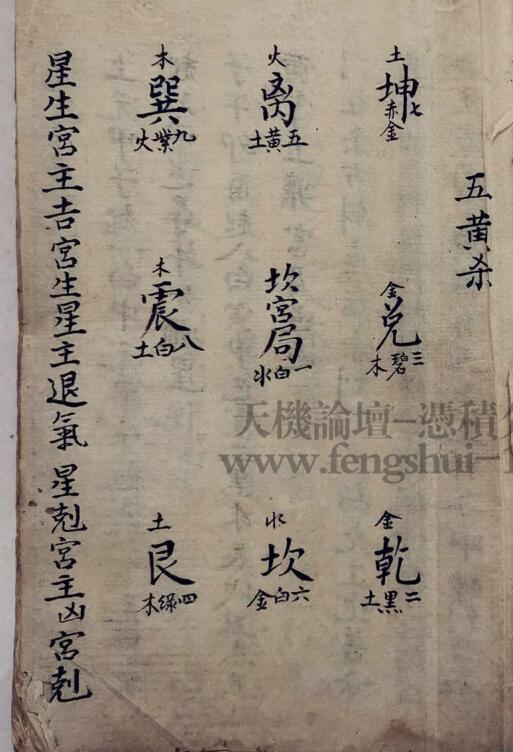 五黄杀
土
坤
七赤金
金
兑
三碧木
金
乾
二黑土
火
离
五黄土
坎宫局
一白水
水
坎
六白金
木
巽
九紫火
木
震
八白土
土
艮
四绿木
星生宮主吉宮生星主退氣 星剋宮主凶宮剋
天機論壇-憑積
www.fengshui-